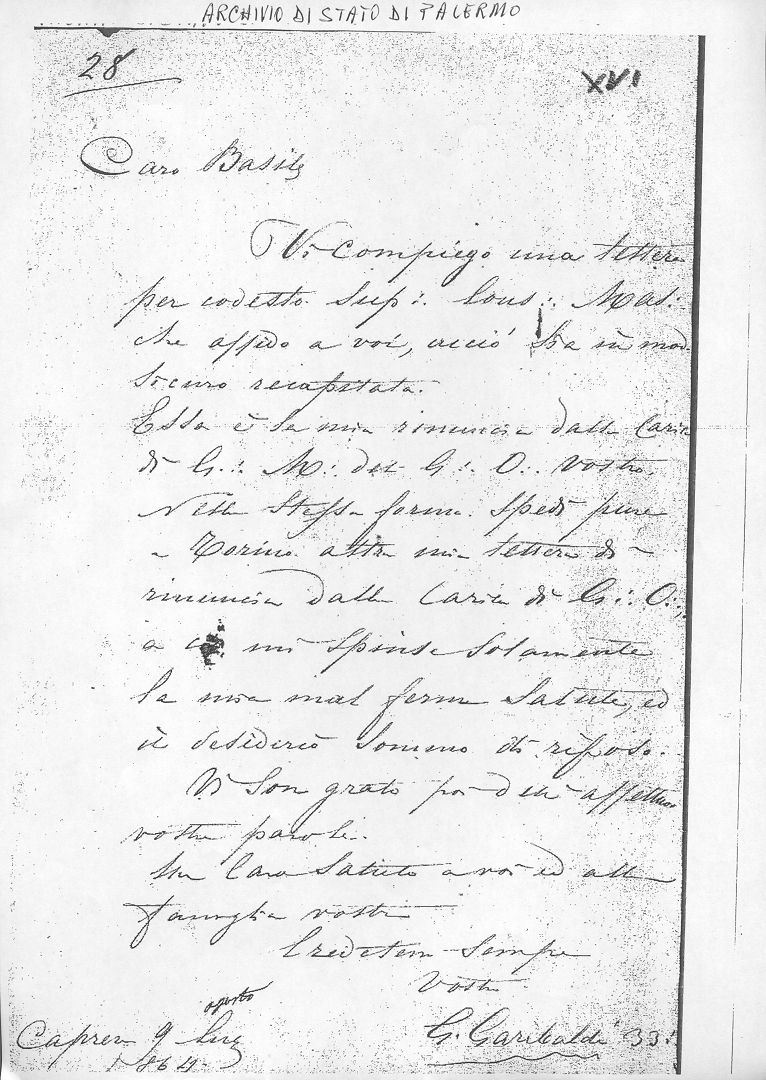 ARCHIVIO DI STATO DI PALERMO
28
XVI
Caro Basile
Vi compiego una lettera
per codesto Sup∴ Cons∴ Mas∴
che affido a voi, acciò sia in mod
sicuro recapitata.
Essa è la mia rinuncia dalla Carica
di G∴ M∴ del G∴ O∴ vostro.
Nella stessa forma spedì pure
a Torino altra mia lettera di
rinuncia dalla Carica di G∴ O∴,
a mi spinse solamente
la mia mal ferma salute, ed
il desiderio sommo di riposo.
Vi son grato poi delle affettuose
vostre parole.
Un caro saluto a voi ed alla
famiglia vostra
Credetemi sempre
Vostro
G. Garibaldi 33∴
agosto
Caprera 9 Lug
1864